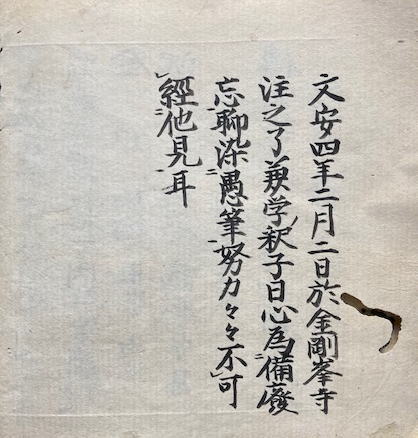 文安四年二月二日於金剛峯寺
注之了兼学釈子日心為備廢
忘聊染愚筆努力々々不可
經他見耳